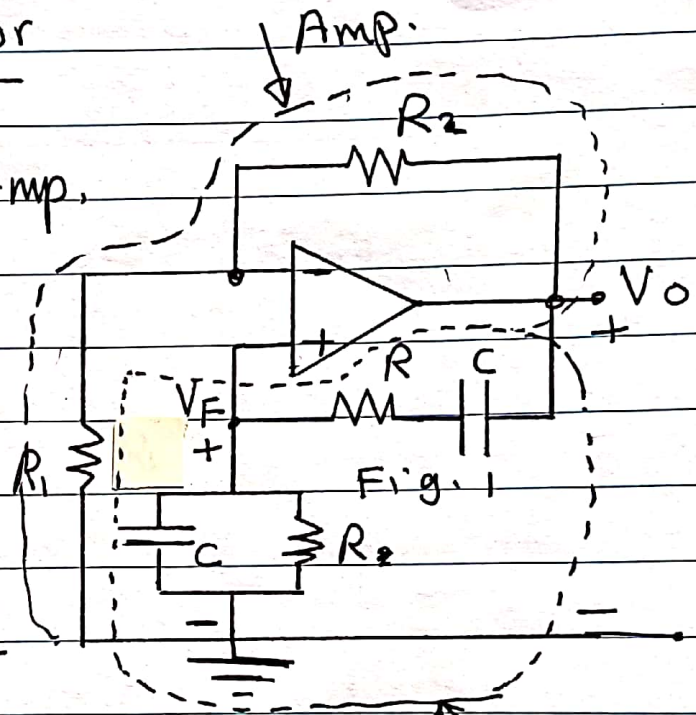 or
Amp.
R2
mp.
−
Vo
+
+
R
C
VF
+
R1
Fig. 1
C
R2
−
−